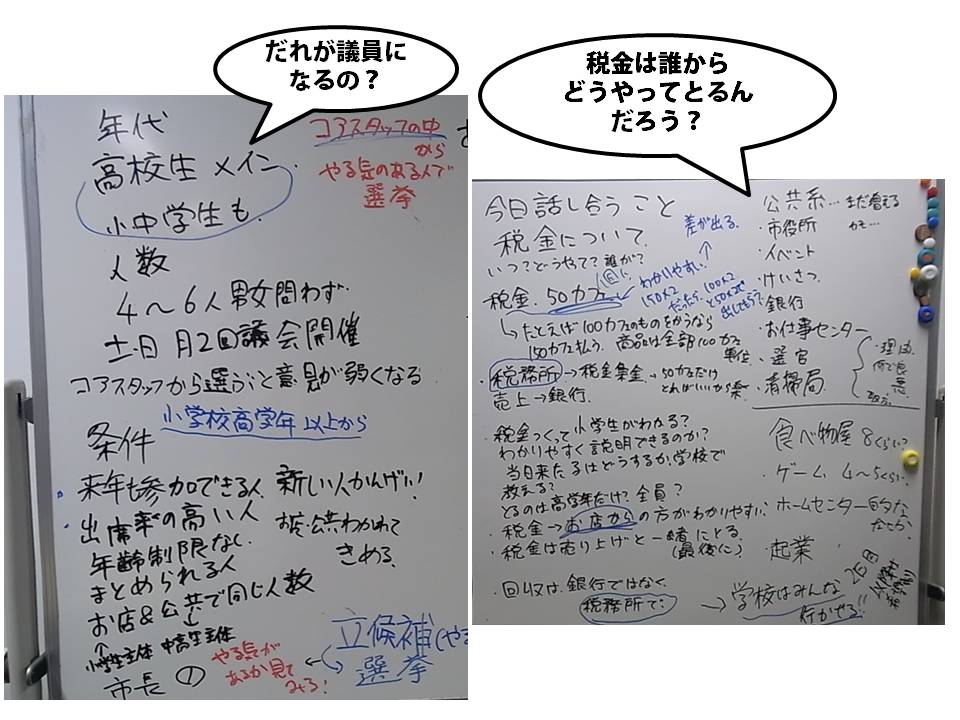 だれが議員に
なるの？
年代
高校生 メイン
小中学生も.
人数
4〜6人 男女問わず
土日 月2回議会開催
コアスタッフから選ぶと意見が弱くなる
小学校高学年以上から
条件
来年も参加できる人
新しい人かんげい!
出席率の高い人
年齢制限なし
まとめられる人
お店&公共で同じ人数
お店公共わかれて
きめる.
小学生主体 中高生主体
市長の
やる気が
あるか見て
みる!
立候補
選挙
コアスタッフの中
から
やる気のある人で
選挙
税金は誰から
どうやってとるん
だろう？
今日話し合うこと
税金について
いつ?どうやって?誰が?
差が出る.
わかりやすい!
150×2
だったら
100×2
と50×2で
税金 50カフェ
→たとえば100カフェのものをかうなら
150カフェ払う. 商品は全部100カフェ
単位
税務所→税金集金
50カフェだけ
とればいいから楽
売上→銀行.
・税金つくって小学生がわかる?
わかりやすく説明できるのか?
当日来たるはどうするか.学校で
教える?
とるのは高学年だけ?全員?
・税金→お店からの方がわかりやすい
・税金は売り上げと一緒にとる.
(最後に)
・回収は銀行ではなく
税務所で:
→学校はみんな
行かせる!!
公共系… まだ増える
かも…
・市役所
・イベント
・けいさつ
・銀行
・お仕事センター
・選官
・清掃局
・理由
食べ物屋 8くらい?
・ゲーム 4〜5くらい.
・ホームセンター的な
・起業